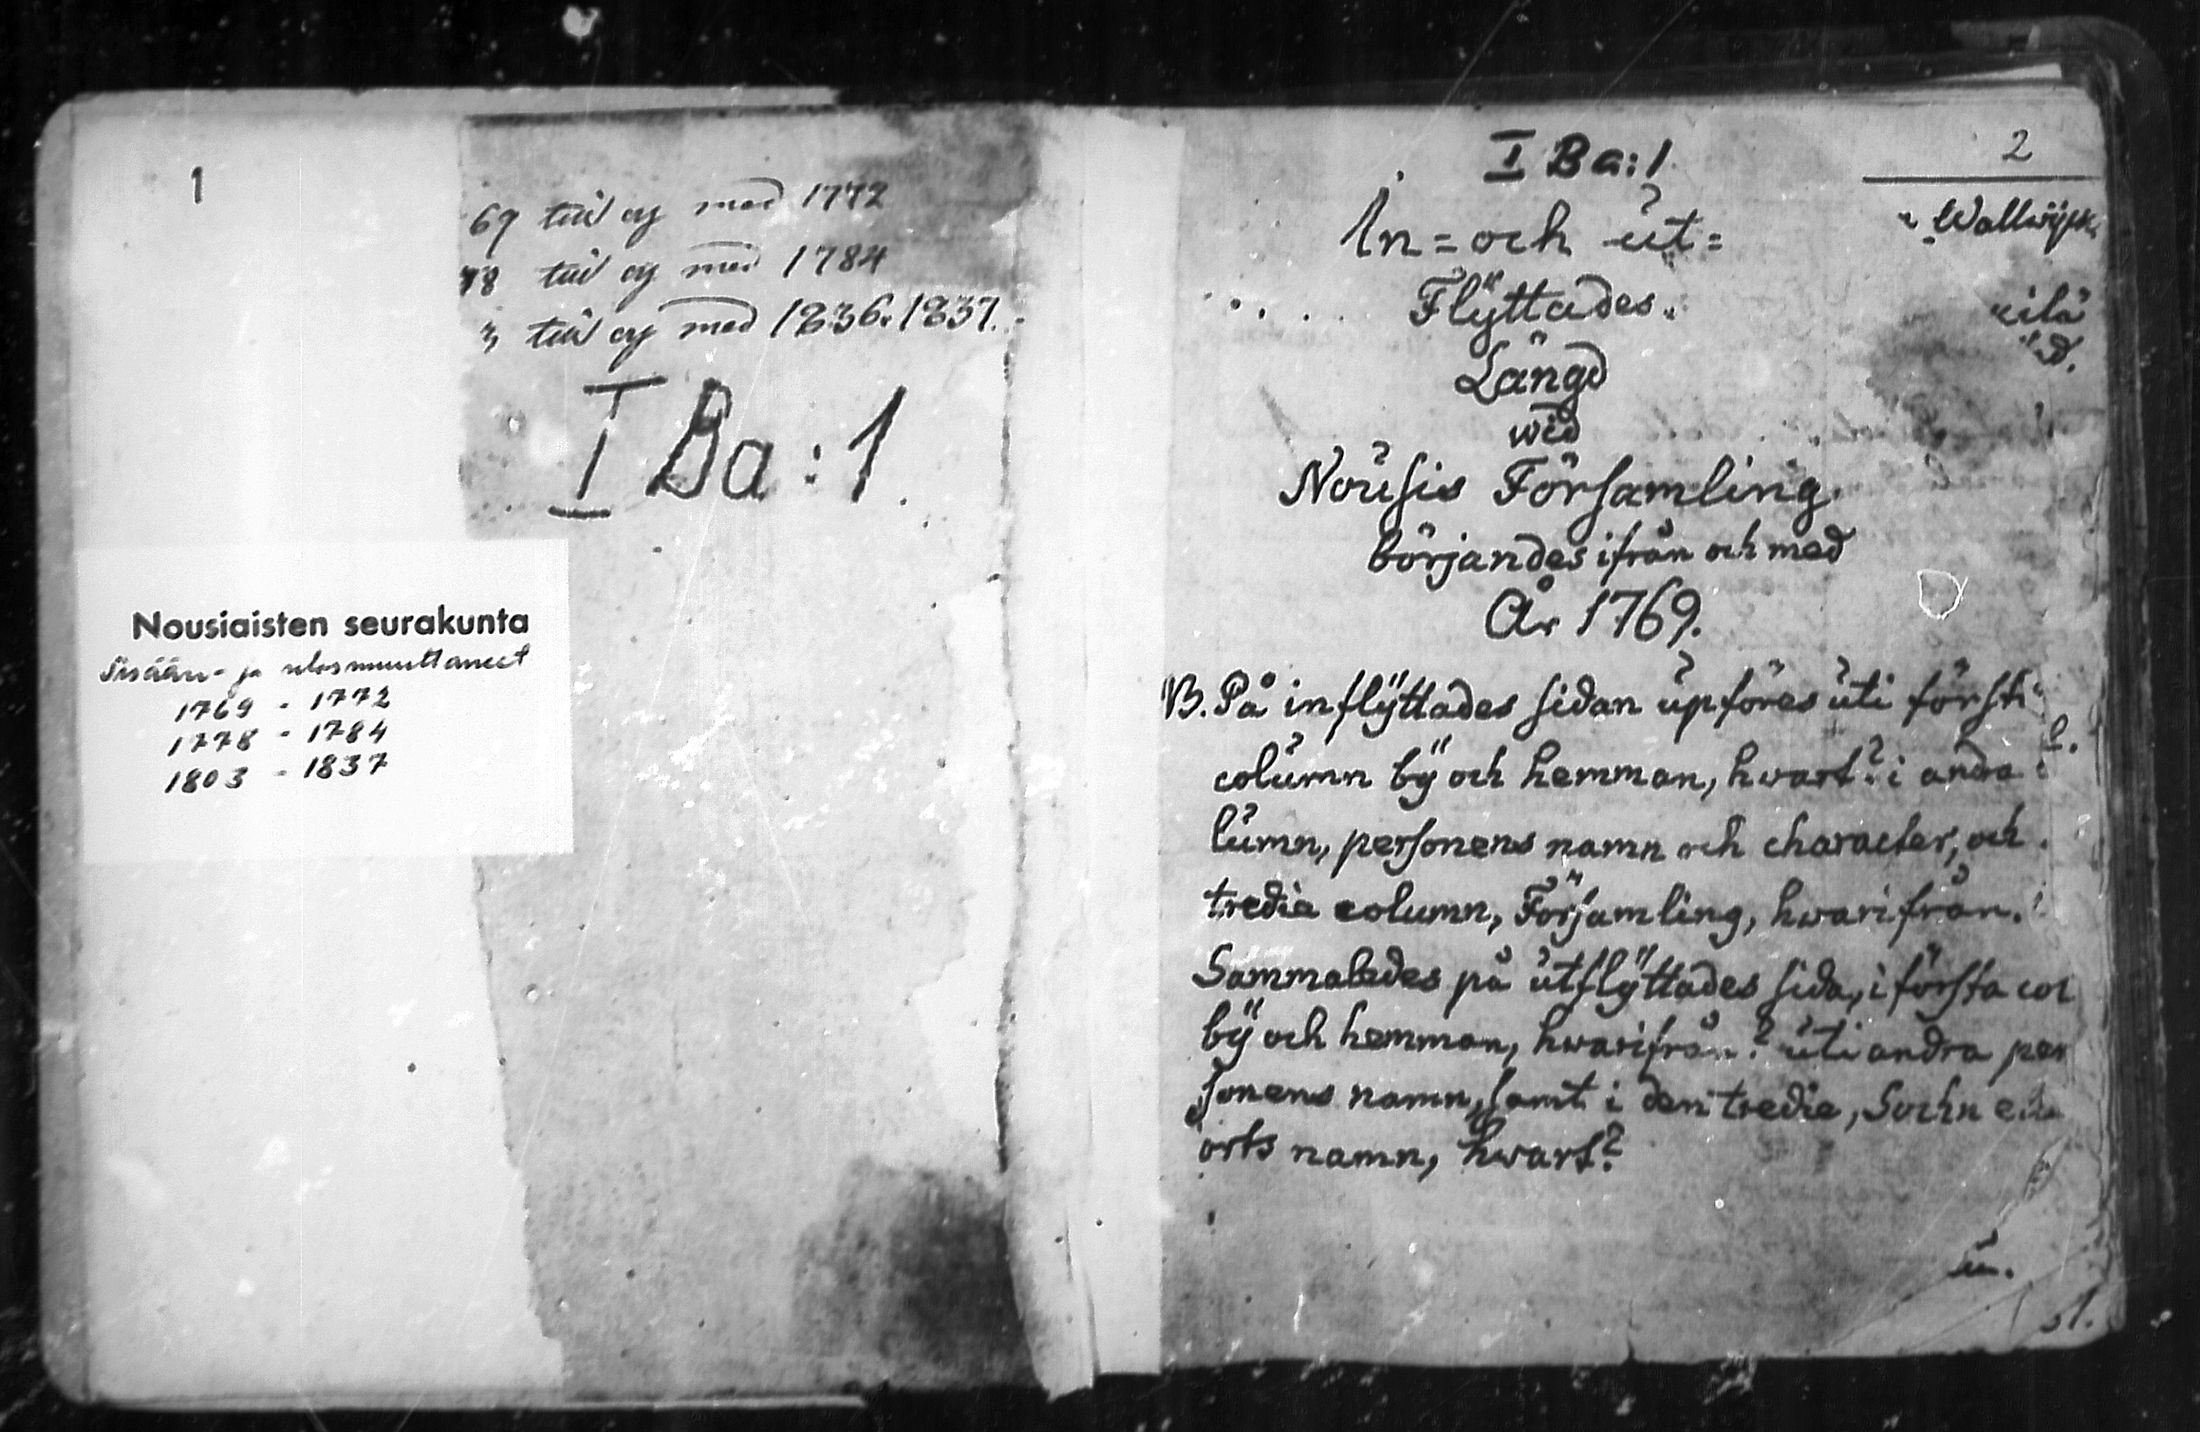 1
69 till og med 1772
78 till og med 1784
3 till og med 1836. 1837.
I Ba: 1.
Nousiaisten seurakunta
Sisään- ja ulosmuuttaneet
1769 - 1772
1778 - 1784
1803 - 1837
I Ba: 1.
2
Wallwijk
In= och ut=
Flÿttades
eilä
d.
Längd
wid
Nousis Församling
börjandes ifrån och med
År 1769.
NB. På inflÿttades sidan upföres uti första
column bÿ och hemman, hwart? i andra
lumn, personens namn och character, och
tredia column, Församling, hwarifrån.
Sammaledes på utflÿttades sida, i första col
bÿ och hemman, hwarifrån? uti andra per
sonens namn, samt i den tredie, Sochn
orts namn, hwart?